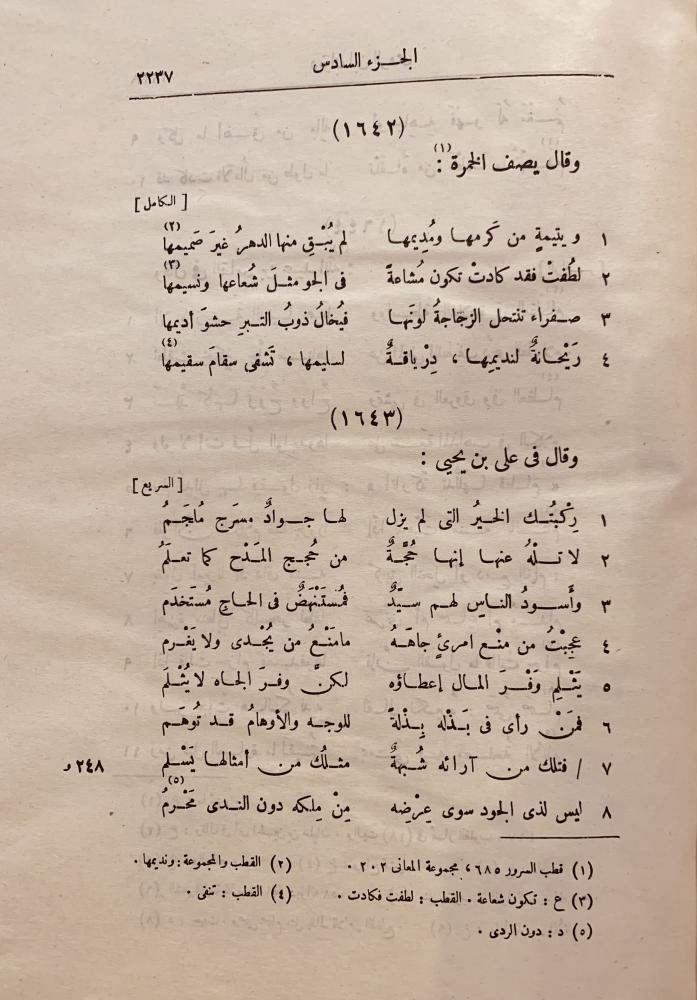 الجزء السادس
٢٢٣٧
(١٦٤٢)
وقال يصف الخمرة(١):
[ الكامل ]
١ ويتيمةٍ من كَرمها ومُديمها لم يُبْقِ منها الدهرُ غيرَ صَميمها(٢)
٢ لطُفتْ فقد كادتْ تكون مُشاعةً فى الجو مثلَ شُعاعها ونسيمها(٣)
٣ صفراء تنتحل الزجاجةُ لونَها فيُخالُ ذوبُ التبرِ حشوَ أديمها
٤ رَيْحانةٌ لنديمها ، دِرْياقةٌ لسليمها ، تَشفى سقامَ سقيمها(٤)
(١٦٤٣)
وقال فى على بن يحيى :
[ السريع ]
١ رِكْبتُك الخيرُ التى لم يزل لها جوادٌ مسرَج مُلجَمُ
٢ لا تلْهُ عنها إنها حُجَّةٌ من حُجج المَدْح كما تعلَمُ
٣ وأَسودُ الناسِ لهم سيّدٌ فمُستَنْهَضٌ فى الحاجِ مُستَخدَم
٤ عجِبْتُ من منْع امرئٍ جاهَهُ مامَنْعُ من يُجْدى ولا يَغْرم
٥ يَثْلِم وَفْرَ المال إعطاؤه لكنّ وفرَ الجاه لا يُثْلَم
٦ فمَنْ رأى فى بَذْله بِذْلةً للوجه والأوهامُ قد تُوهَم
٧ / فتلك من آرائه شُبهةٌ مثلُك من أمثالها يَسْلم
٢٤٨ و
٨ ليس لذى الجود سوى عِرْضِه مِنْ مِلكه دون الندى مَحْرمُ(٥)
(١) قطب السرور ٦٨٥ ، مجموعة المعانى ٢٠٢ . (٢) القطب والمجموعة : ونديمها .
(٣) ع : تكون شعاعة . القطب : لطفت فكادت . (٤) القطب : تنفى .
(٥) د : دون الردى .